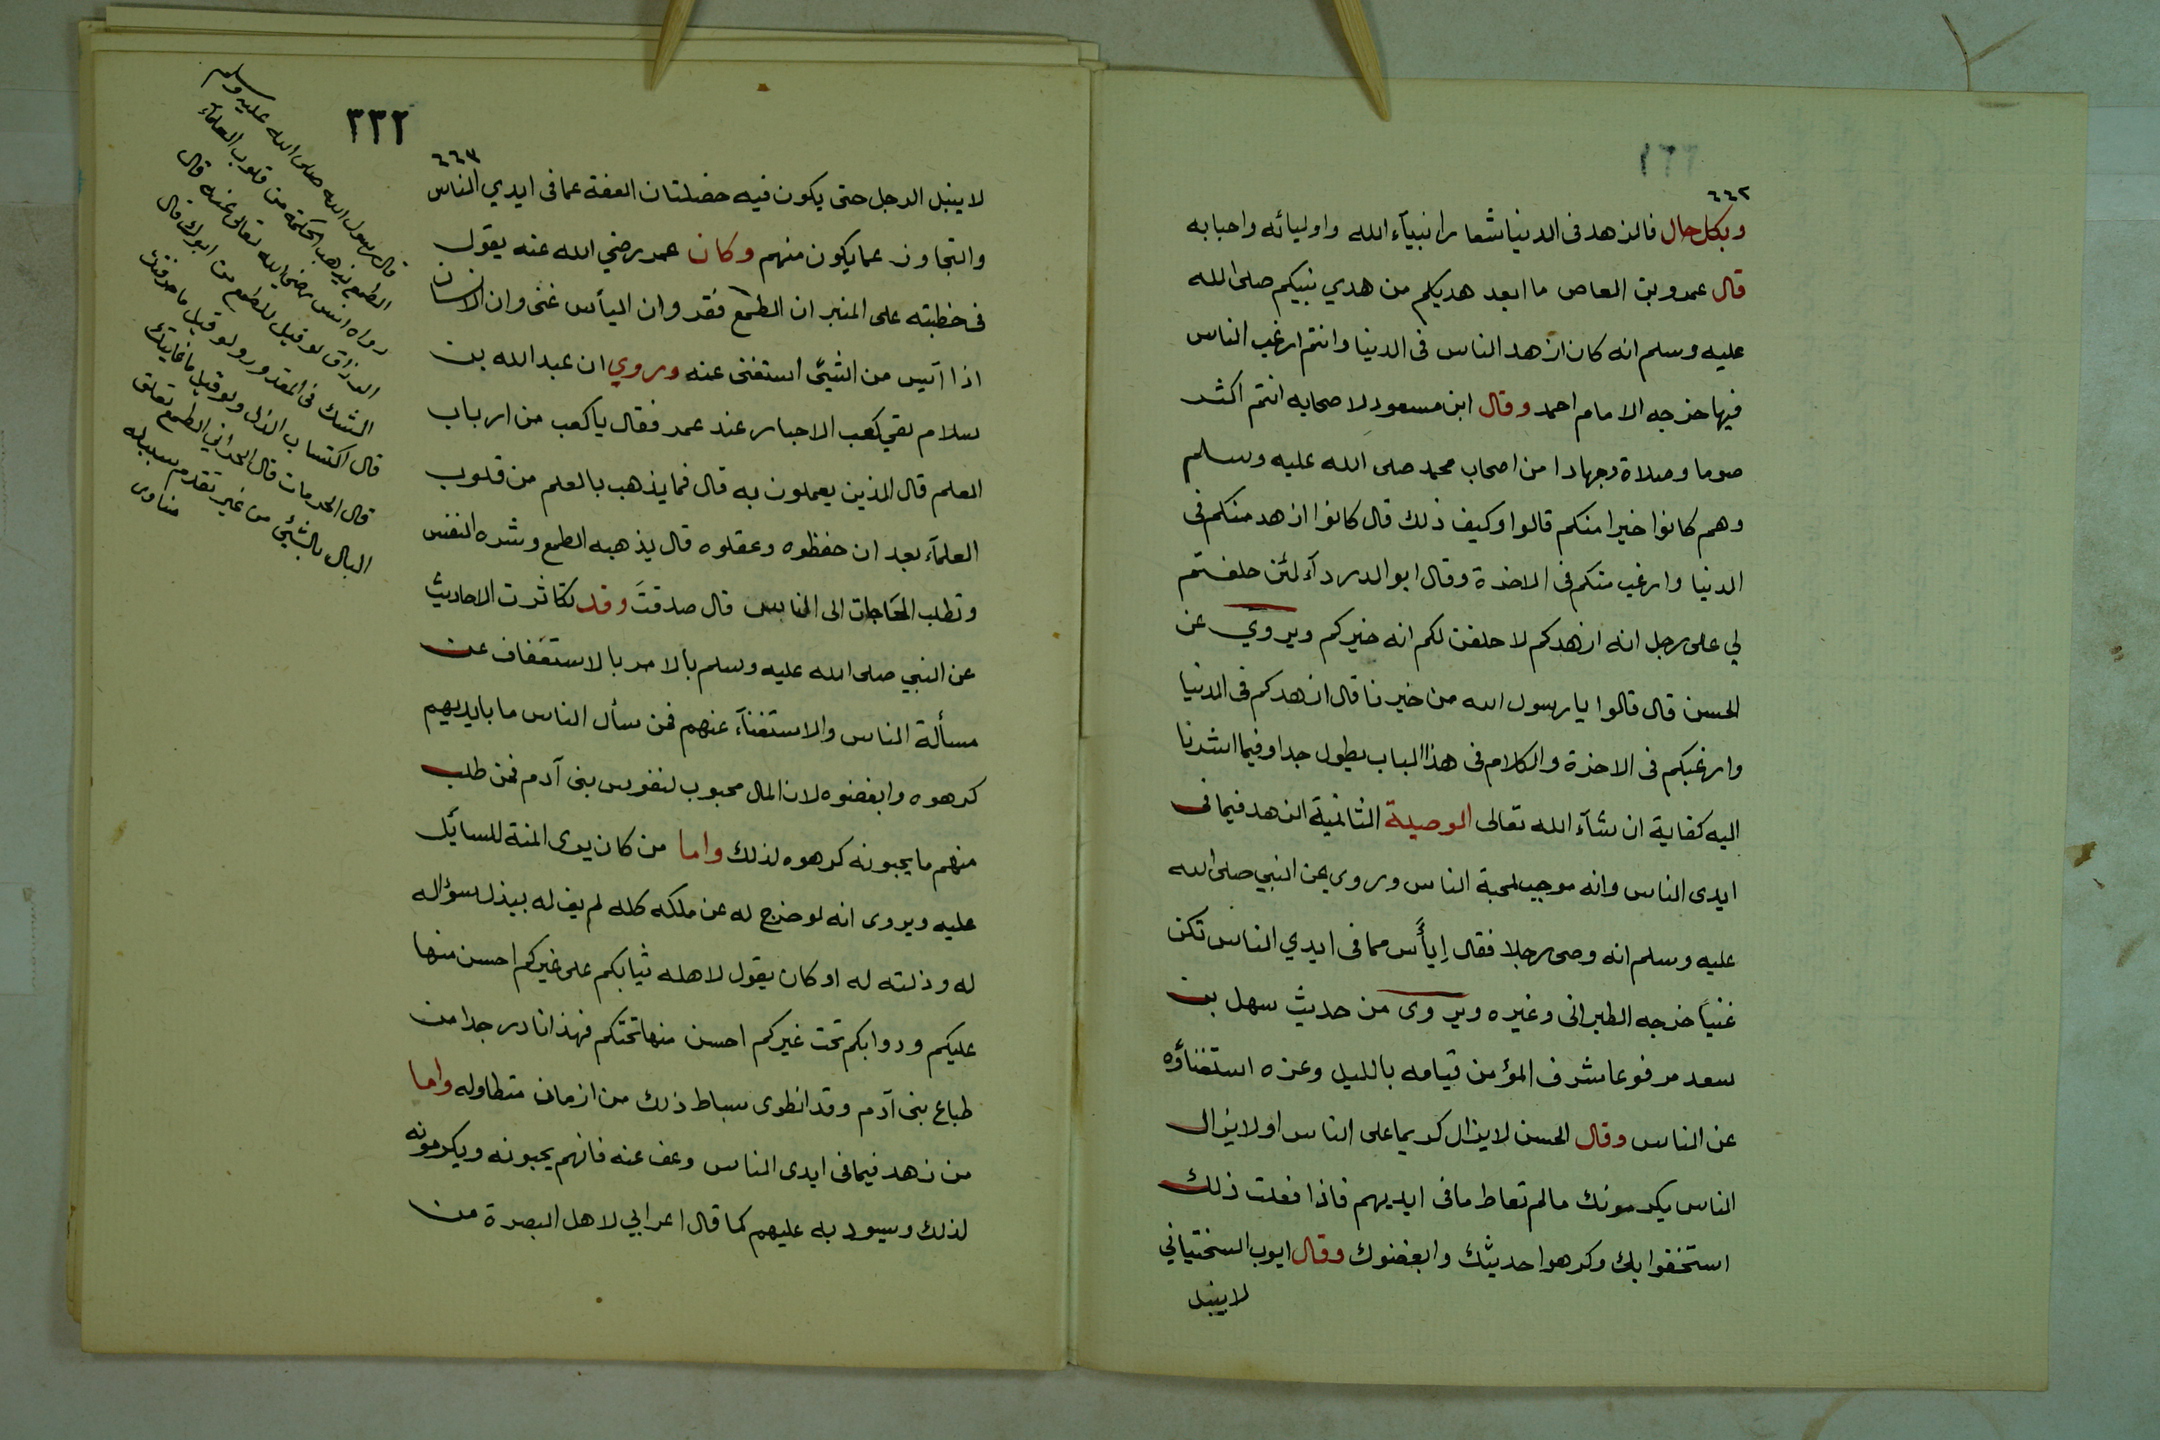 ٤٤٢
وبكل حال فالزهد فى الدنيا شعار انبيآء الله واوليائه واحبابه
قال عمرو بن العاص ما ابعد هديكم من هدي نبيكم صلى الله
عليه وسلم انه كان ازهد الناس فى الدنيا وانتم ارغب الناس
فيها خرجه الامام احمد وقال ابن مسعود لاصحابه انتم اكثر
صوما وصلاة وجهادا من اصحاب محمد صلى الله عليه وسلم
وهم كانوا خيرا منكم قالوا وكيف ذلك قال كانوا ازهد منكم فى
الدنيا وارغب منكم فى الاخرة وقال ابو الدردآء لئن حلفتم
لي على رجل انه ازهدكم لاحلفن لكم انه خيركم ويروي عن
الحسن قال قالوا يا رسول الله من خيرنا قال ازهدكم فى الدنيا
وارغبكم فى الاخرة والكلام فى هذا الباب يطول جدا وفيما اشرنا
اليه كفاية ان شآء الله تعالى الوصية الثانية الزهد فيما فى
ايدى الناس وانه موجب لمحبة الناس وروي عن النبي صلى الله
عليه وسلم انه وصى رجلا فقال إيأس مما فى ايدي الناس تكن
غنيا خرجه الطبرانى وغيره ويروى من حديث سهل بن
سعد مرفوعا شرف المؤمن قيامه بالليل وعزه استغناؤه
عن الناس وقال الحسن لا يزال كريما على الناس او لا يزال
الناس يكرمونك ما لم تعاط ما فى ايديهم فاذا فعلت ذلك
استخفوا بك وكرهوا حديثك وابغضوك وقال ايوب السختياني
لا ينبل
٣٣٢
٤٤٣
لا ينبل الرجل حتى يكون فيه خصلتان العفة عما فى ايدي الناس
والتجاوز عما يكون منهم وكان عمر رضي الله عنه يقول
فى خطبته على المنبر ان الطمع فقر وان اليأس غنى وان الانسان
اذا آيس من الشئ استغنى عنه وروي ان عبد الله بن
سلام لقي كعب الاحبار عند عمر فقال يا كعب من ارباب
العلم قال الذين يعملون به قال فما يذهب بالعلم من قلوب
العلمآء بعد ان حفظوه وعقلوه قال يذهبه الطمع وشره النفس
وتطلب الحاجات الى الناس قال صدقت وقد تكاثرت الاحاديث
عن النبي صلى الله عليه وسلم بالامر بالاستعفاف عن
مسألة الناس والاستغنآء عنهم فمن سأل الناس ما بايديهم
كرهوه وابغضوه لان المال محبوب لنفوس بنى آدم فمن طلب
منهم ما يحبونه كرهوه لذلك واما من كان يرى المنة للسائل
عليه ويروى انه لو خرج له عن ملكه كله لم يف له ببذل سؤاله
له وذلته له او كان يقول لاهله ثيابكم على غيركم احسن منها
عليكم ودوابكم تحت غيركم احسن منها تحتكم فهذا نادر جدا من
طباع بنى آدم وقد انطوى بساط ذلك من ازمان متطاوله واما
من زهد فيما فى ايدى الناس وعف عنه فانهم يحبونه ويكرمونه
لذلك ويسود به عليهم كما قال اعرابي لاهل البصرة من
قال رسول الله صلى الله عليه وسلم
الطمع يذهب الحكمة من قلوب العلمآء
رواه انس رضي الله تعالى عنه قال
الوراق لو قيل للطمع من ابوك قال
الشك فى المقدور ولو قيل ما حرفتك
قال اكتساب الذل ولو قيل ما غايتك
قال الحرمان قال الحراني الطمع تعلق
البال بالشئ من غير تقدم سبب له
مناوى